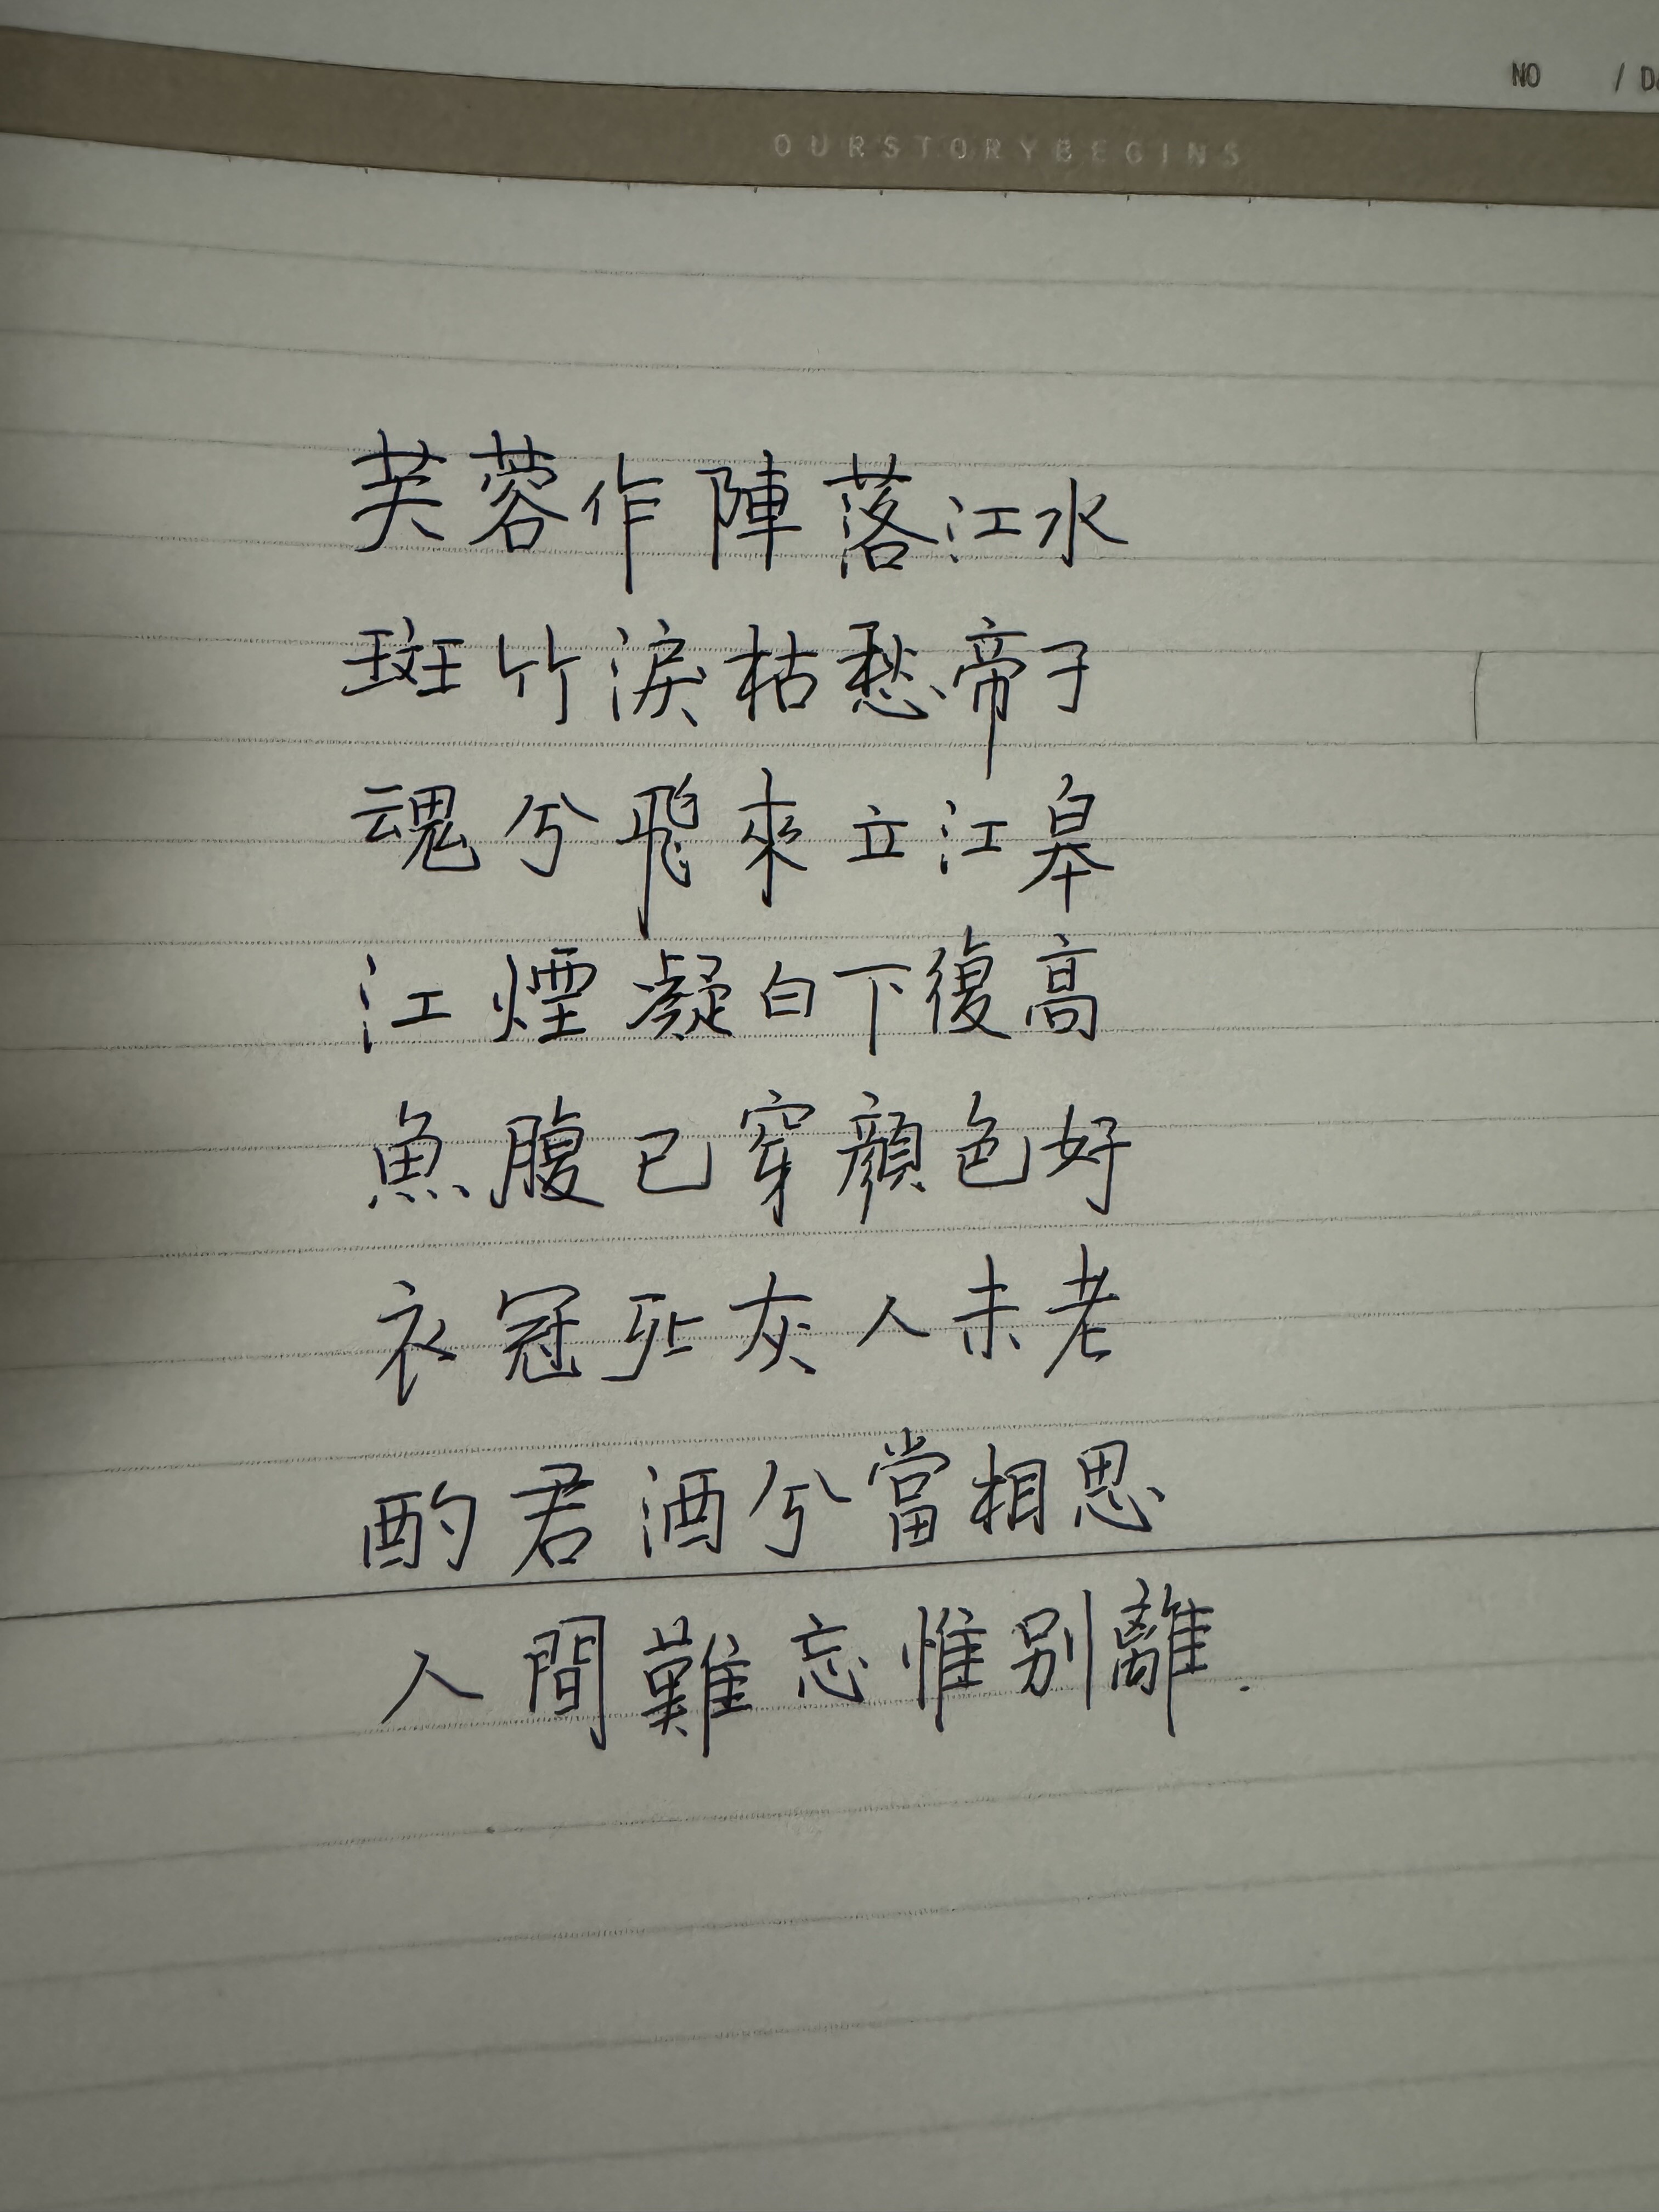 NO / Da
OURSTORYBEGINS
芙蓉作陣落江水
斑竹淚枯愁帝子
魂兮飛來立江皋
江煙凝白下復高
魚腹已穿顏色好
衣冠作灰人未老
酌君酒兮當相思
人間難忘惟別離.